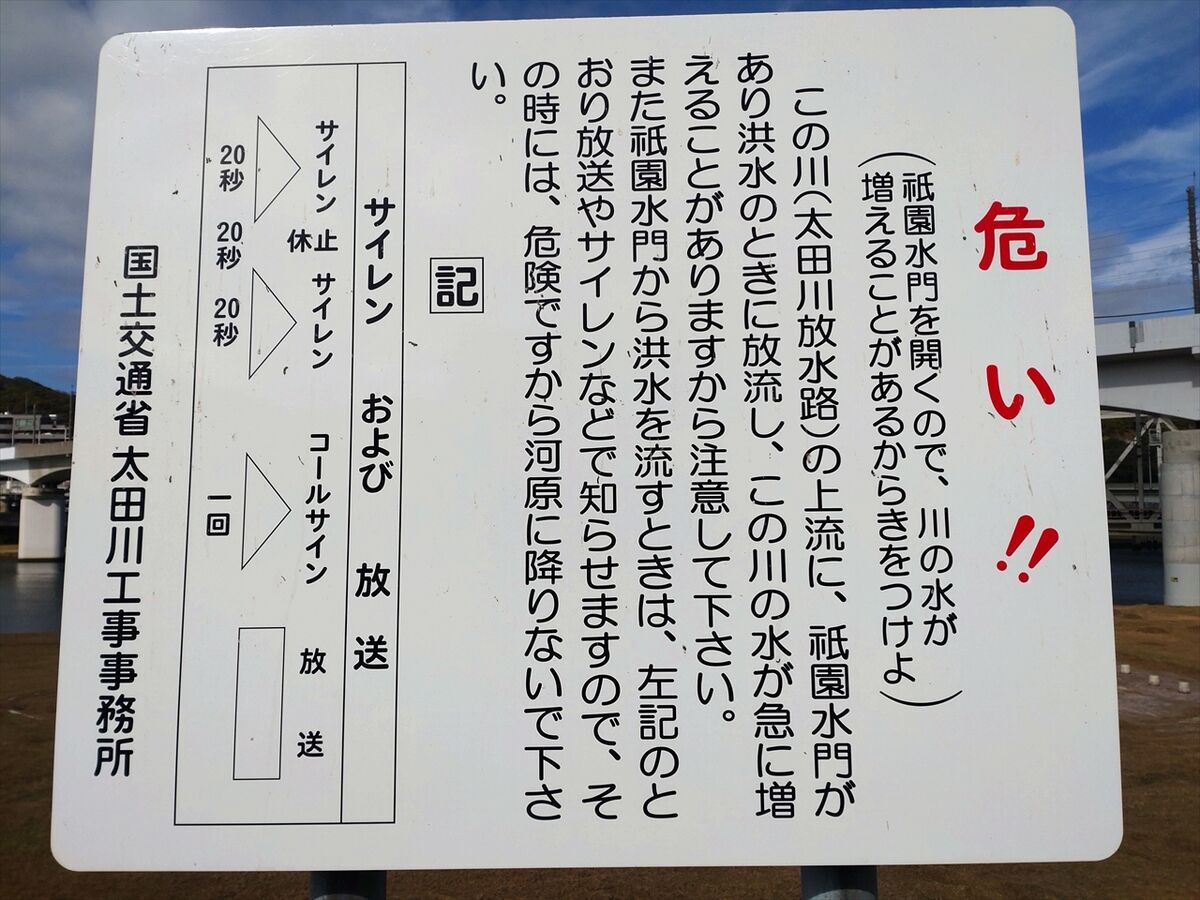 危い!!
(祇園水門を開くので、川の水が
増えることがあるからきをつけよ)
この川(太田川放水路)の上流に、祇園水門が
あり洪水のときに放流し、この川の水が急に増
えることがありますから注意して下さい。
また祇園水門から洪水を流すときは、左記のと
おり放送やサイレンなどで知らせますので、そ
の時には、危険ですから河原に降りないで下さ
い。
記
サイレン および 放送
サイレン 休止 サイレン コールサイン 放送
20秒 20秒 20秒 一回
国土交通省 太田川工事事務所